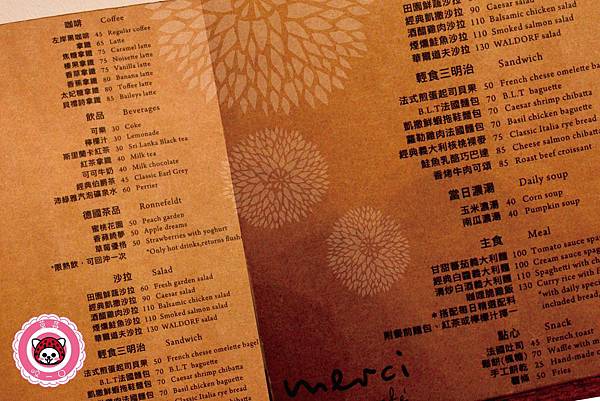 咖啡 Coffee
左岸黑咖啡 45 Regular coffee
拿鐵 65 Latte
焦糖拿鐵 75 Caramel latte
榛果拿鐵 75 Noisette latte
香草拿鐵 75 Vanilla latte
香蕉拿鐵 80 Banana latte
太妃糖拿鐵 80 Toffee latte
貝禮詩拿鐵 85 Baileys latte
飲品 Beverages
可樂 30 Coke
檸檬汁 30 Lemonade
斯里蘭卡紅茶 30 Sri Lanka Black tea
紅茶拿鐵 40 Milk tea
可可牛奶 40 Milk chocolate
經典伯爵茶 45 Classic Earl Grey
沛綠雅汽泡礦泉水 60 Perrier
德國茶品 Ronnefeldt
蜜桃花園 50 Peach garden
香蘋饒夢 50 Apple dreams
草莓優格 50 Strawberries with yoghurt
*限熱飲，可回沖一次 *Only hot drinks,returns flush
沙拉 Salad
田園鮮蔬沙拉 60 Fresh garden salad
經典凱撒沙拉 90 Caesar salad
酒醋雞肉沙拉 110 Balsamic chicken salad
煙燻鮭魚沙拉 110 Smoked salmon salad
華爾道夫沙拉 130 WALDORF salad
輕食三明治 Sandwich
法式煎蛋起司貝果 50 French chesse omelette bagel
B.L.T法國麵包 70 B.L.T baguette
凱撒鮮蝦拖鞋麵包 70 Caesar shrimp chibatta
70 Basil chicken baguette
Classic Italia rye bread
田園鮮蔬沙拉
經典凱撒沙拉 90 Caesar salad
酒醋雞肉沙拉 110 Balsamic chicken salad
煙燻鮭魚沙拉 110 Smoked salmon salad
華爾道夫沙拉 130 WALDORF salad
輕食三明治 Sandwich
法式煎蛋起司貝果 50 French chesse omelette bagel
B.L.T法國麵包 70 B.L.T baguette
凱撒鮮蝦拖鞋麵包 70 Caesar shrimp chibatta
羅勒雞肉法國麵包 70 Basil chicken baguette
經典義大利核桃裸麥 75 Classic Italia rye bread
鮭魚乳酪巧巴達 85 Cheese salmon chibatta
香烤牛肉可頌 85 Roast beef croissant
當日濃湯 Daily soup
玉米濃湯 40 Corn soup
南瓜濃湯 40 Pumpkin soup
主食 Meal
甘甜蕃茄義大利麵 100 Tomato sauce spag
經典白醬義大利麵 100 Cream sauce spag
清炒白酒義大利麵 110 Spaghetti with ch
咖哩脆雞飯 130 Curry rice with f
*搭配每日精選配料 *with daily spec
附餐前麵包、紅茶或檸檬汁擇一 included bread,
點心 Snack
法國吐司 45 French toast
鬆餅(楓糖) 70 Waffle with m
手工餅乾 25 Hand-made c
薯條 50 Fries
merci
café